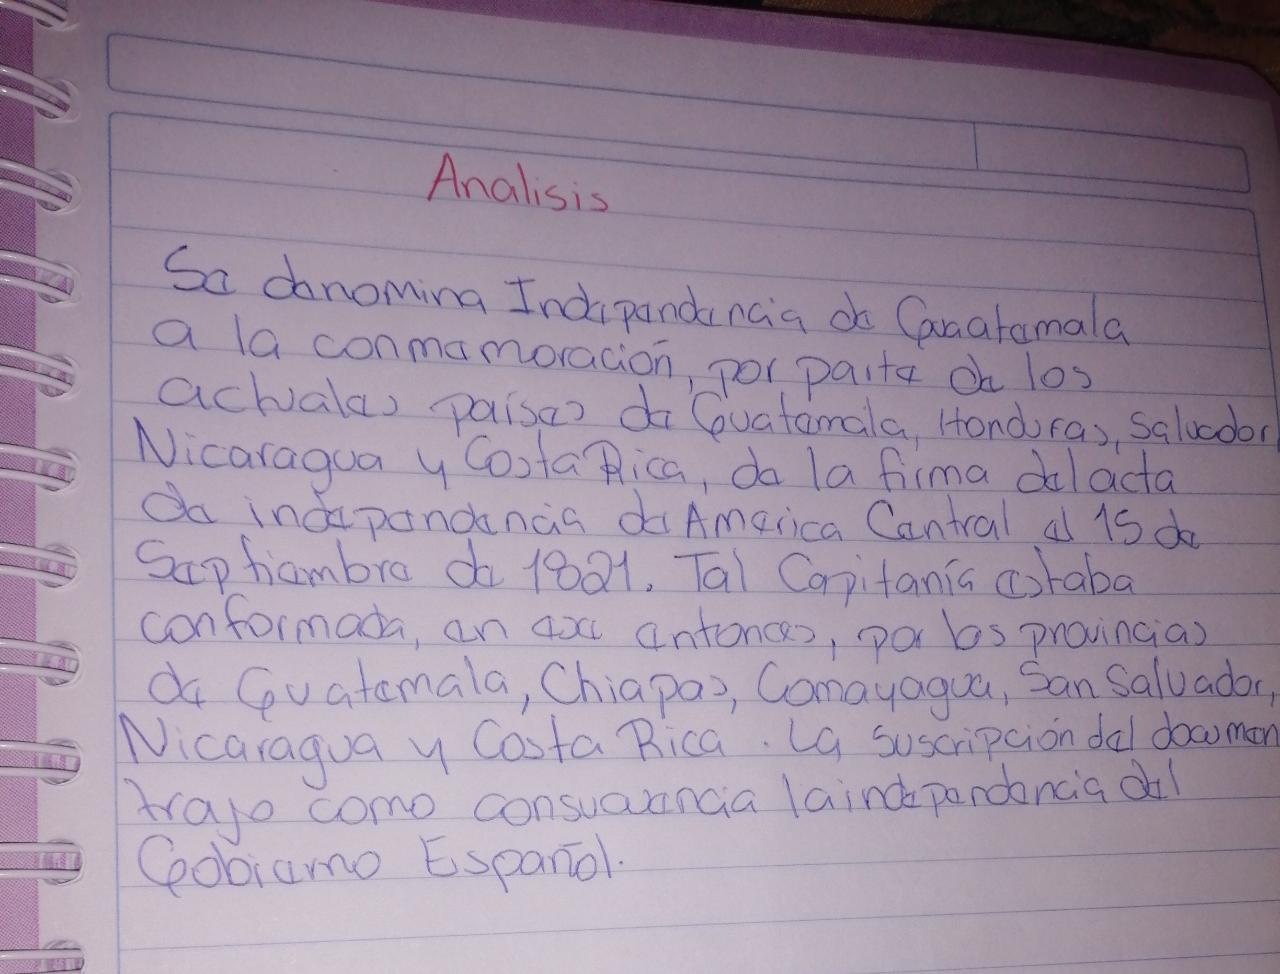 Analisis
Se denomina Independencia de Guatemala
a la conmemoración, por parte de los
actuales países de Guatemala, Honduras, Salvador
Nicaragua y Costa Rica, de la firma del acta
de independencia de America Central el 15 de
Septiembre de 1821. Tal Capitanía estaba
conformada, en ese entonces, por las provincias
de Guatemala, Chiapas, Comayagua, San Salvador,
Nicaragua y Costa Rica. La suscripción del documen
trajo como consuecencia la independencia del
Gobierno Español.